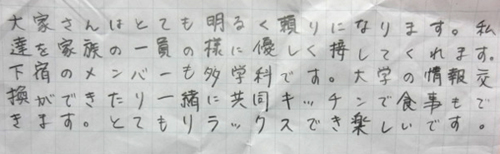 大家さんはとても明るく頼りになります。私
達を家族の一員の様に優しく接してくれます。
下宿のメンバーも多学科です。大学の情報交
換ができたり一緒に共同キッチンで食事もで
きます。とてもリラックスでき楽しいです。